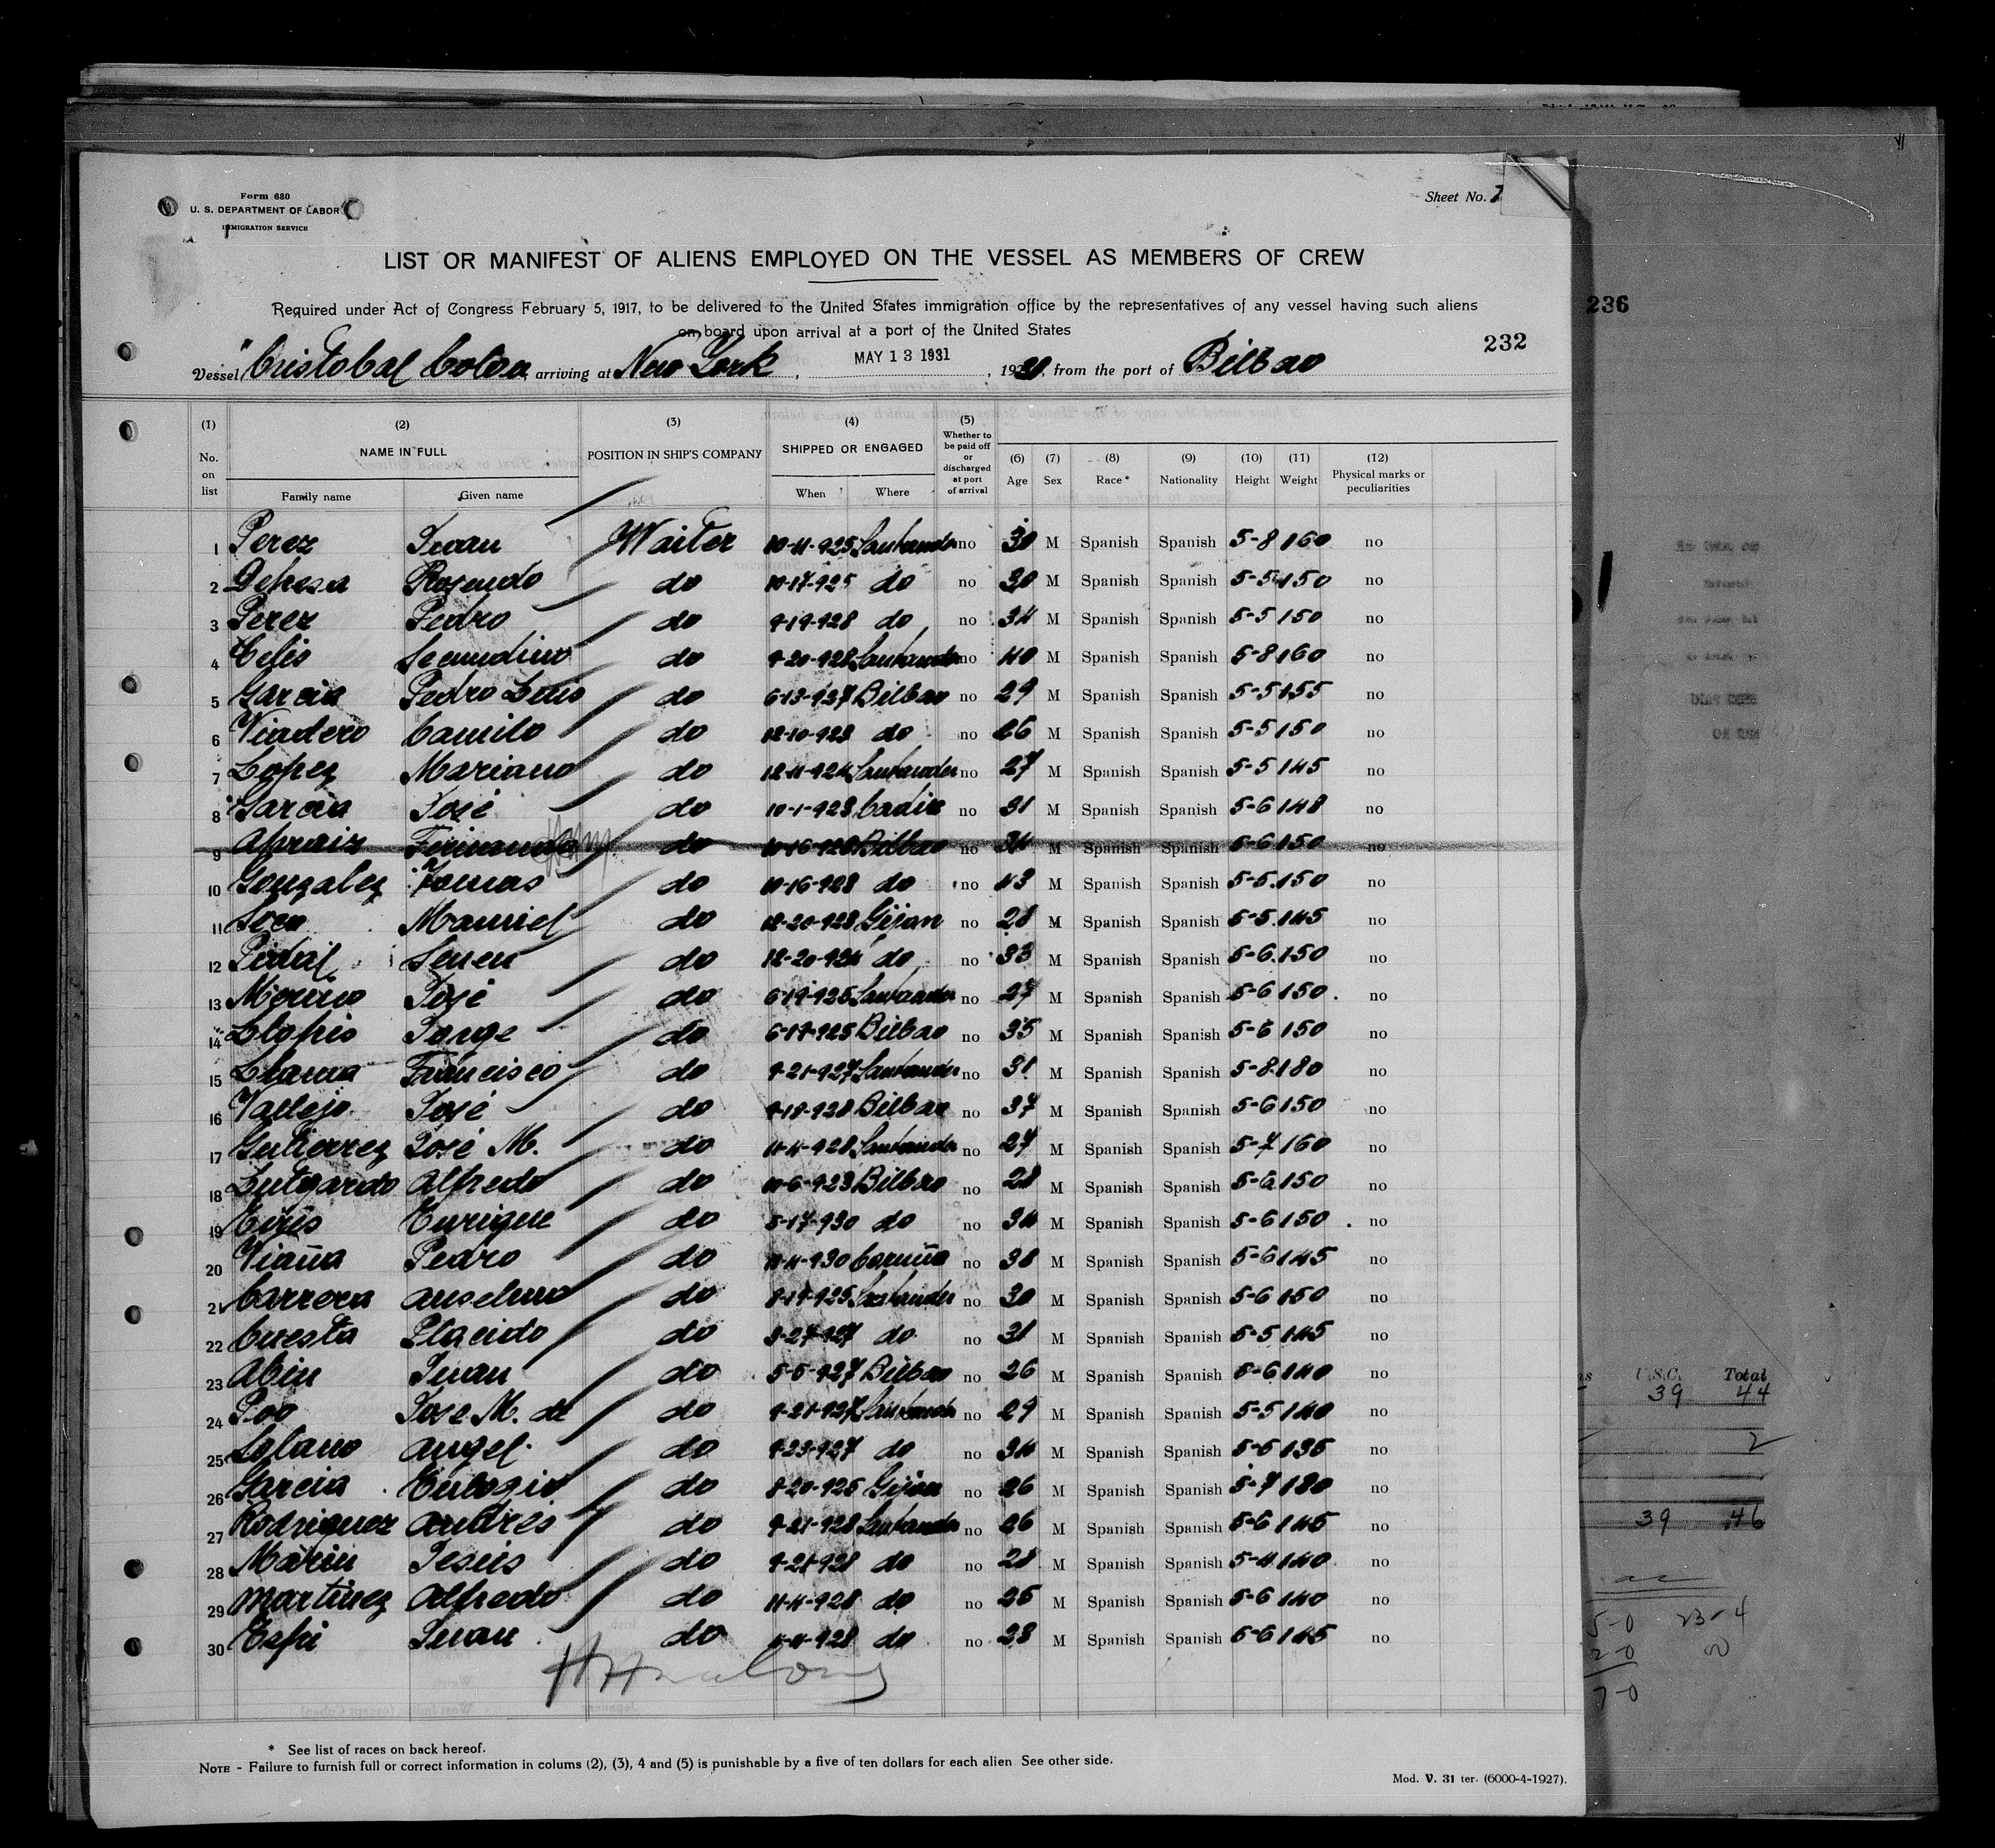 Form 680
U. S. DEPARTMENT OF LABOR
IMMIGRATION SERVICE
Sheet No. 7
LIST OR MANIFEST OF ALIENS EMPLOYED ON THE VESSEL AS MEMBERS OF CREW
Required under Act of Congress February 5, 1917, to be delivered to the United States immigration office by the representatives of any vessel having such aliens
on board upon arrival at a port of the United States
232
236
Vessel "Cristobal Colon, arriving at New York, MAY 13 1931, from the port of Bilbao
(1) No. on list
(2) NAME IN FULL
Family name Given name
(3) POSITION IN SHIP'S COMPANY
(4) SHIPPED OR ENGAGED
When Where
(5) Whether to be paid off or discharged at port of arrival
(6) Age
(7) Sex
(8) Race*
(9) Nationality
(10) Height
(11) Weight
(12) Physical marks or peculiarities
1 Perez Juan Waiter 10-11-925 Santander no 30 M Spanish Spanish 5-8 160 no
2 Dehesa Rosendo do 10-17-925 do no 30 M Spanish Spanish 5-5 150 no
3 Perez Pedro do 9-19-928 do no 34 M Spanish Spanish 5-5 150 no
4 Celis Secundino do 9-20-928 Santander no 40 M Spanish Spanish 5-8 160 no
5 Garcia Pedro Luis do 6-13-927 Bilbao no 29 M Spanish Spanish 5-5 155 no
6 Viadero Camilo do 12-10-928 do no 26 M Spanish Spanish 5-5 150 no
7 Lopez Mariano do 12-11-924 Santander no 27 M Spanish Spanish 5-5 145 no
8 Garcia José do 10-1-923 Cadiz no 31 M Spanish Spanish 5-6 148 no
9 Apraiz do 10-16-928 Bilbao no 34 M Spanish Spanish 5-6 150 no
10 Gonzalez Tomas do 10-16-928 do no 43 M Spanish Spanish 5-5 150 no
11 Manuel do 12-20-928 Gijon no 28 M Spanish Spanish 5-5 145 no
12 Pidal Senen do 12-20-924 do no 33 M Spanish Spanish 5-6 150 no
13 José do 6-19-925 Santander no 27 M Spanish Spanish 5-6 150 no
14 Llopis Jorge do 6-17-925 Bilbao no 35 M Spanish Spanish 5-6 150 no
15 Llama Francisco do 9-21-927 Santander no 31 M Spanish Spanish 5-8 180 no
16 Vallejo José do 9-19-928 Bilbao no 37 M Spanish Spanish 5-6 150 no
17 Gutierrez José M. do 11-11-928 Santander no 27 M Spanish Spanish 5-7 160 no
18 Lutgardo Alfredo do 10-6-923 Bilbao no 28 M Spanish Spanish 5-6 150 no
19 Enrique do 5-17-930 do no 34 M Spanish Spanish 5-6 150 no
20 Viaña Pedro do 11-11-930 Coruña no 38 M Spanish Spanish 5-6 145 no
21 Carrera Anselmo do 8-19-925 Santander no 30 M Spanish Spanish 5-6 150 no
22 Cuesta Placido do 8-27-927 do no 31 M Spanish Spanish 5-5 145 no
23 Abin Juan do 5-5-927 Bilbao no 26 M Spanish Spanish 5-6 140 no
24 Poo Jose M. de do 9-21-927 Santander no 29 M Spanish Spanish 5-5 140 no
25 Solano Angel do 9-23-927 do no 34 M Spanish Spanish 5-5 135 no
26 Garcia Eulogio do 8-20-925 Gijon no 26 M Spanish Spanish 5-7 180 no
27 Rodriguez Andrés do 9-21-928 Santander no 26 M Spanish Spanish 5-6 145 no
28 Marin Jesús do 9-21-928 do no 28 M Spanish Spanish 5-4 140 no
29 Martinez Alfredo do 11-11-928 do no 25 M Spanish Spanish 5-6 140 no
30 Espi Juan do 928 do no 28 M Spanish Spanish 5-6 145 no
U.S.C. Total
39 44
2
39 46
* See list of races on back hereof.
NOTE - Failure to furnish full or correct information in colums (2), (3), 4 and (5) is punishable by a five of ten dollars for each alien See other side.
Mod. V. 31 ter. (6000-4-1927).